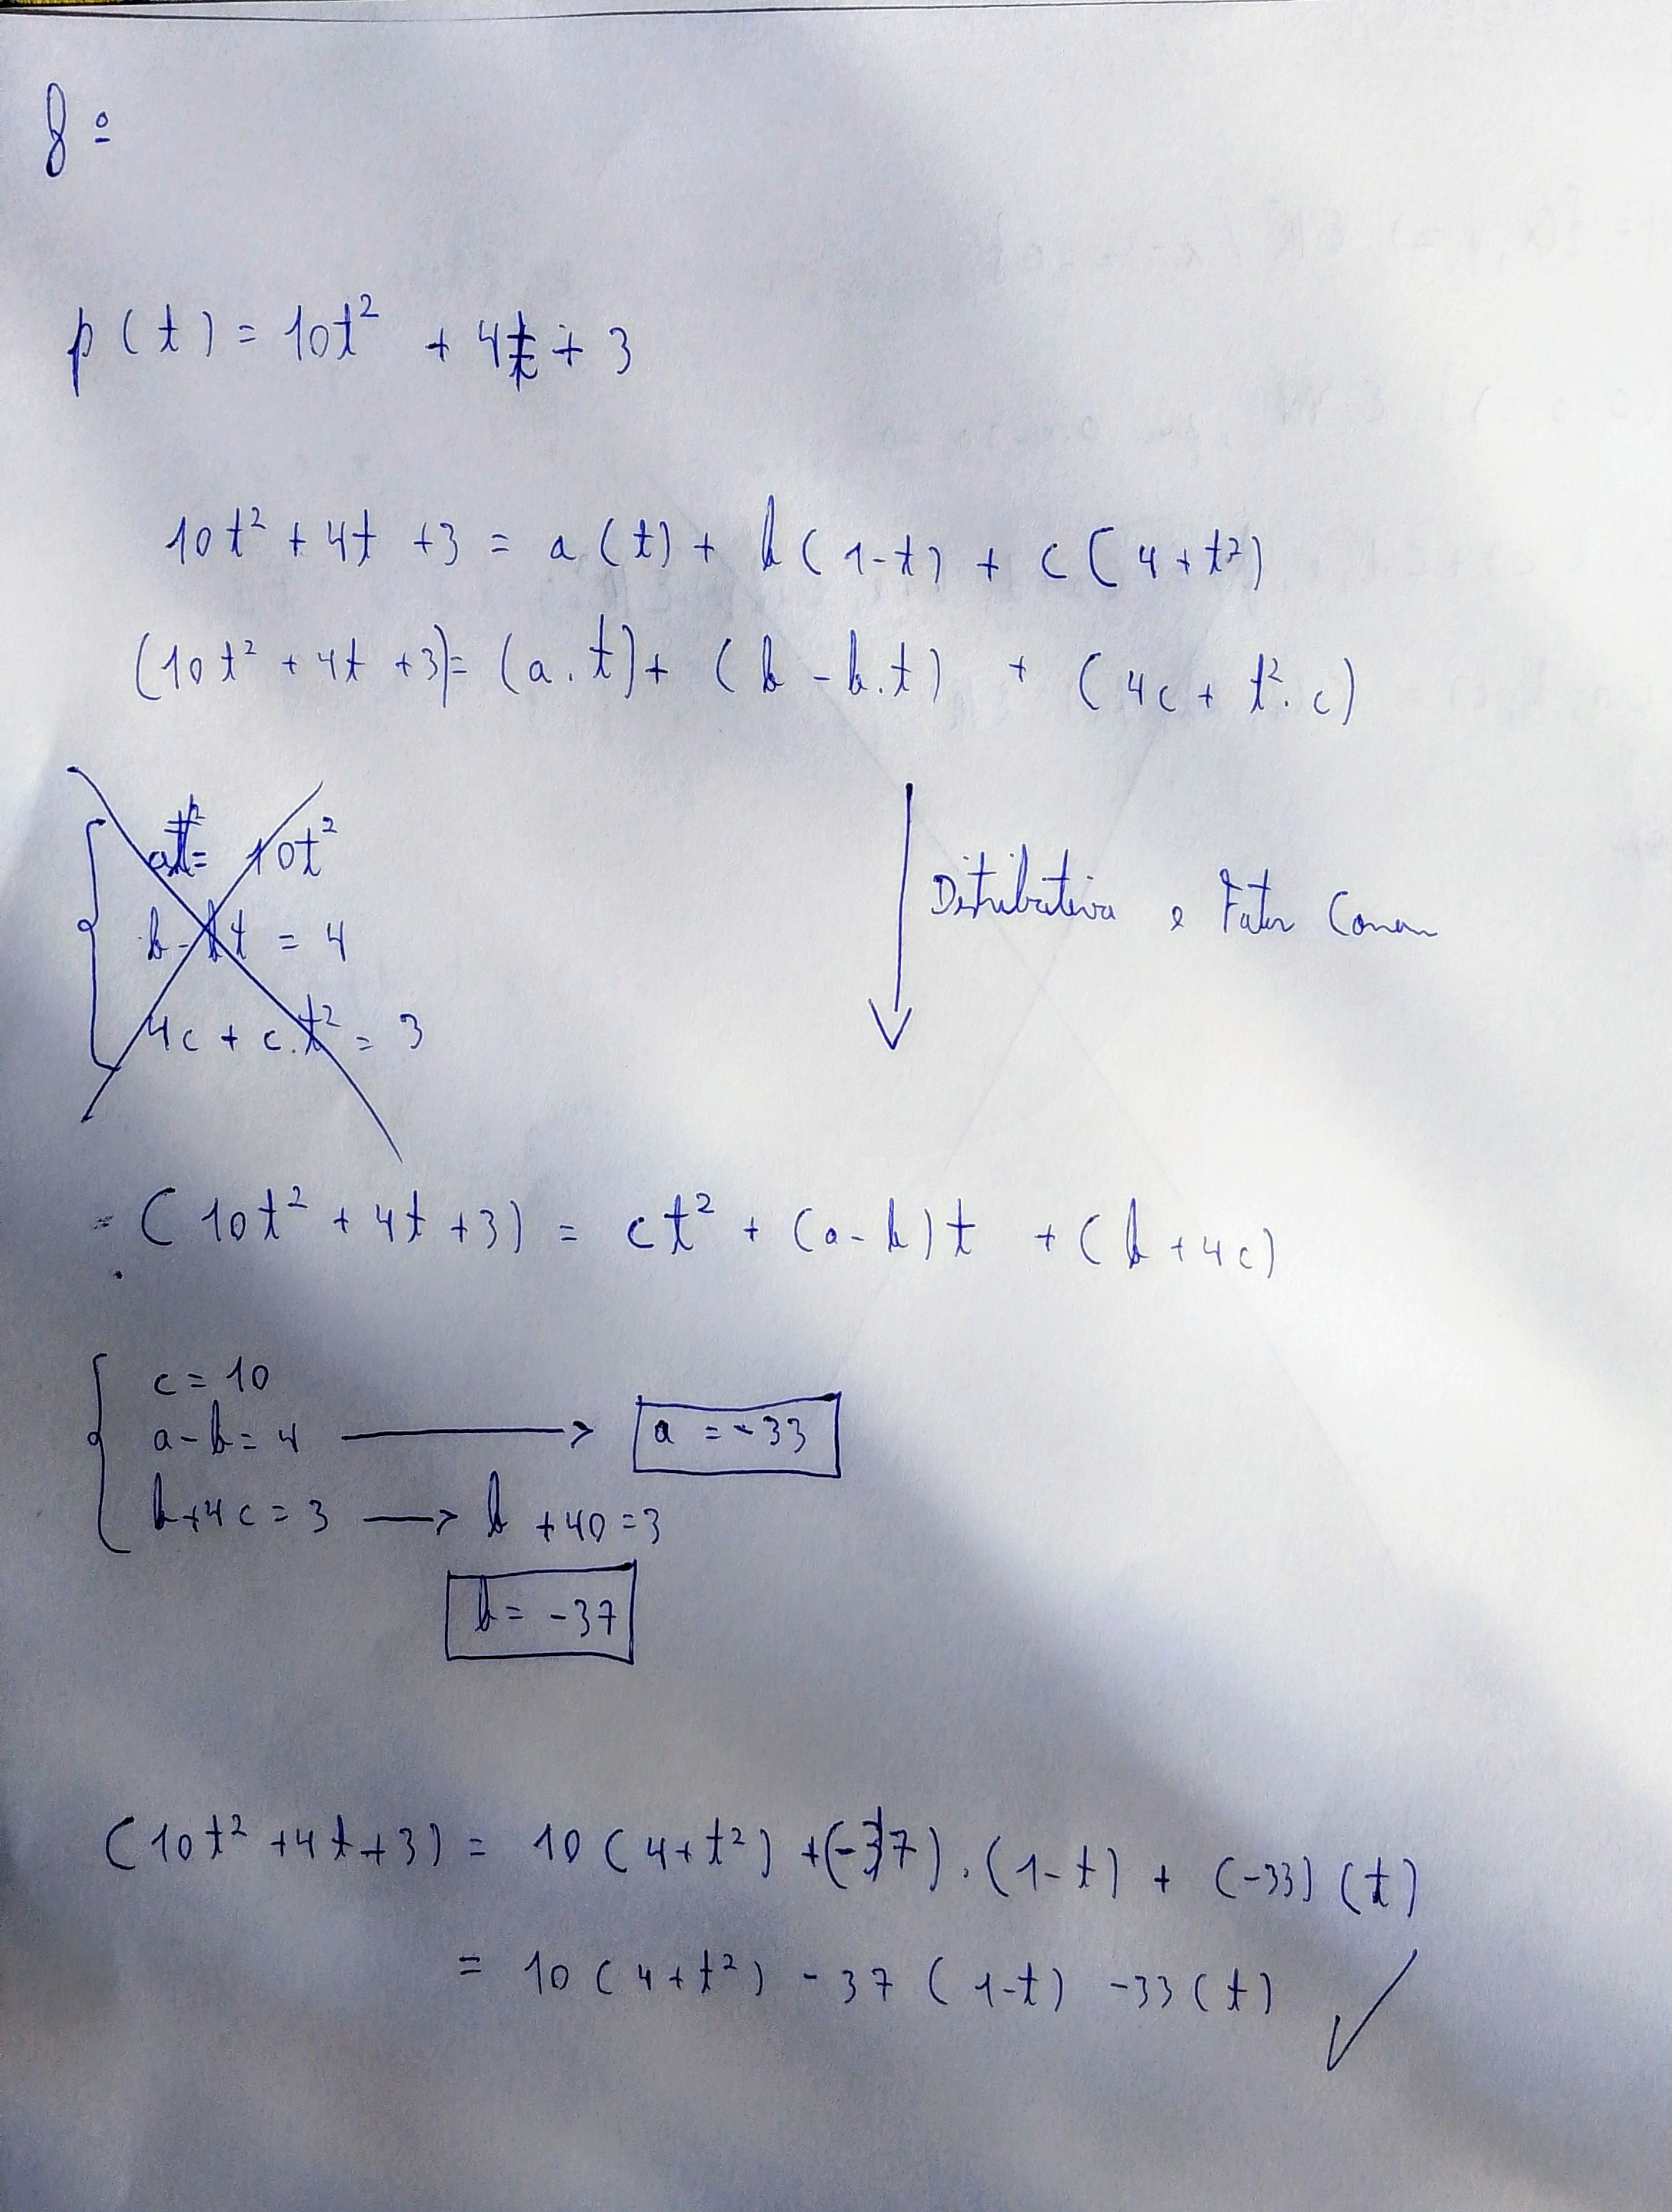 8º
p(t) = 10t² + 4t + 3
10t² + 4t + 3 = a(t) + b(1-t) + c(4+t²)
(10t² + 4t + 3) = (a.t) + (b - b.t) + (4c + t².c)
at² = 10t²
b - bt = 4
4c + c.t² = 3
Distributiva e Fator Comum
(10t² + 4t + 3) = ct² + (a-b)t + (b+4c)
c = 10
a-b = 4 → a = -33
b+4c = 3 → b +40=3
b = -37
(10t² +4t+3) = 10(4+t²) +(-37).(1-t) + (-33)(t)
= 10(4+t²) - 37(1-t) -33(t) ✓